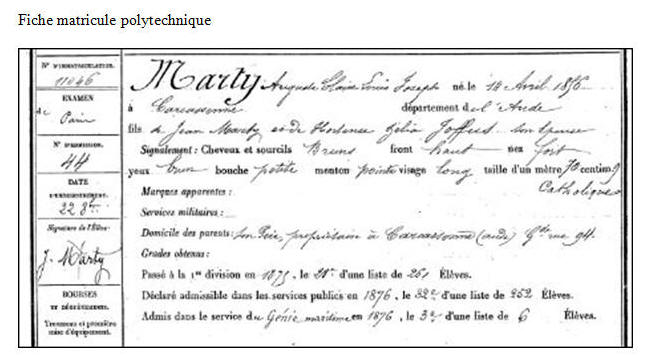 Fiche matricule polytechnique
N° D'IMMATRICULATION.
11046
EXAMEN
de Paris
N° D'ADMISSION.
44
DATE
D'ENREGISTREMENT.
22 8bre
Signature de l'Élève.
J. Marty
BOURSES
ET DÉGRÈVEMENTS.
Trousseau et première
mise d'équipement.
Marty Auguste Louis Joseph né le 14 Avril 1856
à Carcassonne département de l'Aude
fils de Jean Marty et de Hortense Joffres son épouse
Signalement: Cheveux et sourcils Bruns front haut nez fort
yeux brun bouche petite menton pointu visage long taille d'un mètre 70 centim. 9
Catholique
Marques apparentes:
Services militaires:
Domicile des parents: son Père, propriétaire à Carcassonne (aude) Gde rue 94.
Grades obtenus:
Passé à la 1re division en 1875, le d'une liste de 251 Élèves.
Déclaré admissible dans les services publics en 1876, le 32e d'une liste de 252 Élèves.
Admis dans le service du Génie maritime en 1876, le 3e d'une liste de 6 Élèves.